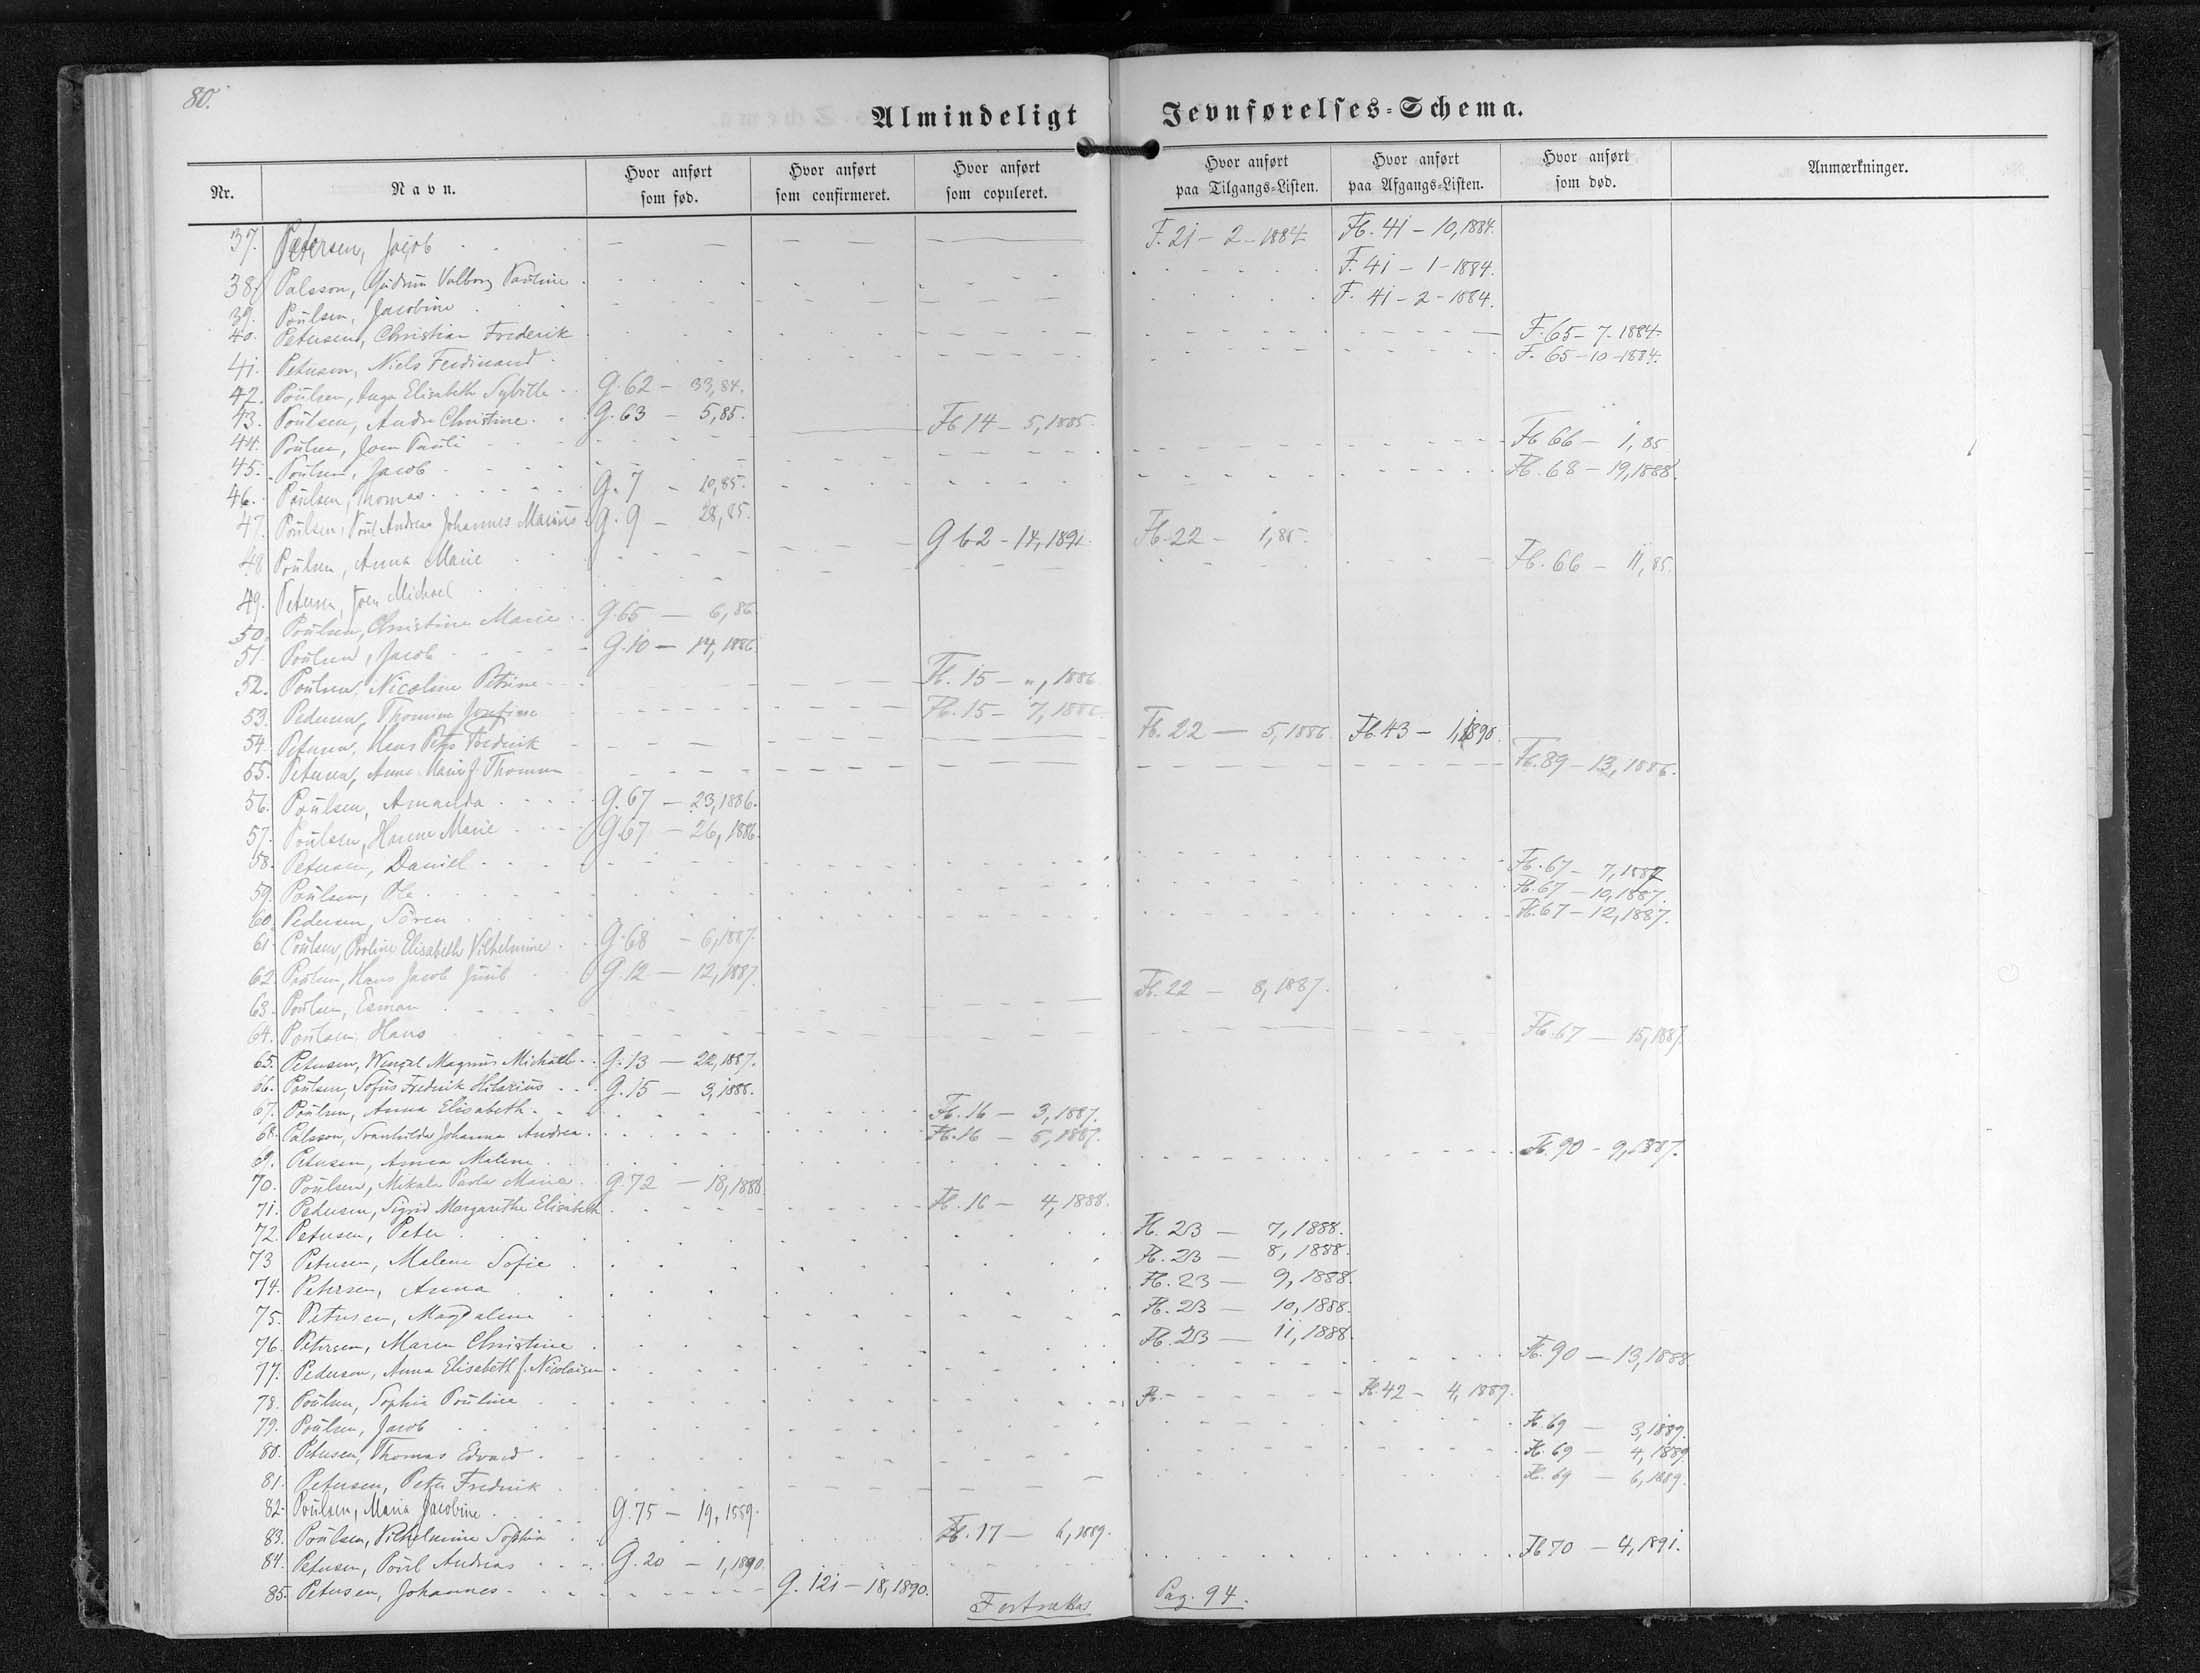 80.
Almindeligt Jevnførelses=Schema.
Nr. Navn. Hvor anført som fød. Hvor anført som confirmeret. Hvor anført som copuleret. Hvor anført paa Tilgangs=Listen. Hvor anført paa Afgangs=Listen. Hvor anført som død. Anmærkninger.
37. Petersen, Jacob F. 21 - 2 - 1884 Fb. 41 - 10, 1884.
38. Palsson, Gudrun Valborg Pauline F. 41 - 1 - 1884.
39. Poulsen, Jacobine F. 41 - 2 - 1884.
40. Petersen, Christian Frederik F. 65 - 7 - 1884.
41. Petersen, Niels Ferdinand F. 65 - 10 - 1884.
42. Poulsen, Inga Elisabeth Sybille G. 62 - 33, 84.
43. Poulsen, Andrea Christine G. 63 - 5, 85.
44. Poulsen, Joen Pauli Fb 14 - 5, 1885.
45. Poulsen, Jacob Fb 66 - 1, 85
46. Poulsen, Thomas G. 7 - 19, 85. Fb. 68 - 19, 1888.
47. Poulsen, Poul Andreas Johannes Marius G. 9 - 28, 85.
48 Poulsen, Anna Marie G 62 - 14, 1891 Fb. 22 - 1, 85.
49. Petersen, Joen Michael Fb. 66 - 11, 85.
50. Poulsen, Christine Marie G. 65 - 6, 86.
51. Poulsen, Jacob G. 10 - 14, 1886
52. Poulsen, Nicoline Petrine Fb. 15 - „, 1886
53. Pedersen, Thomine Josefine Fb. 15 - 7, 1886
54. Petersen, Hans Peter Frederik Fb. 22 - 5, 1886 Fb. 43 - 1, 1890.
55. Petersen, Anne Marie f. Thomsen Fb. 89 - 13, 1886.
56. Poulsen, Amanda G. 67 - 23, 1886.
57. Poulsen, Hanne Marie G. 67 - 26, 1886.
58. Petersen, Daniel Fb. 67 - 7, 1887
59. Poulsen, Ole Fb. 67 - 10, 1887.
60. Pedersen, Sören Fb. 67 - 12, 1887.
61. Poulsen, Poline Elisabeth Vilhelmine G. 68 - 6, 1887.
62. Poulsen, Hans Jacob Juul G. 12 - 12, 1887.
63. Poulsen, Esman Fb. 22 - 8, 1887.
64. Poulsen, Hans Fb. 67 - 15, 1887.
65. Petersen, Wenzel Magnus Michael G. 13 - 22, 1887.
66. Poulsen, Sofus Frederik Hilarius G. 15 - 3, 1888.
67. Poulsen, Anna Elisabeth Fb. 16 - 3, 1887.
68. Palsson, Svanhilda Johanna Andrea Fb. 16 - 5, 1887.
69. Petersen, Anna Malene Fb. 90 - 9, 1887.
70. Poulsen, Mikala Paula Maria G. 72 - 18, 1888
71. Pedersen, Sigrid Margarethe Elisabeth Fb. 16 - 4, 1888.
72. Petersen, Peter Fb. 23 - 7, 1888.
73 Petersen, Malene Sofie Fb. 23 - 8, 1888.
74. Petersen, Anna Fb. 23 - 9, 1888.
75. Petersen, Magdalena Fb. 23 - 10, 1888.
76. Petersen, Maren Christine Fb. 23 - 11, 1888.
77. Pedersen, Anna Elisabeth f. Nicolaisen Fb. 90 - 13, 1888
78. Poulsen, Sophie Pouline Fb. - Fb. 42 - 4, 1889.
79. Poulsen, Jacob Fb. 69 - 3, 1889.
80. Petersen, Thomas Edvard Fb. 69 - 4, 1889
81. Petersen, Peter Frederik Fb. 69 - 6, 1889.
82. Poulsen, Maria Jacobine G. 75 - 19, 1889.
83. Poulsen, Vilhelmine Sophia Fb. 17 - 6, 1889.
84. Petersen, Poul Andreas G. 20 - 1, 1890. Fb 70 - 4, 1891.
85. Petersen, Johannes G. 121 - 18, 1890.
Fortsættes Pag. 94.